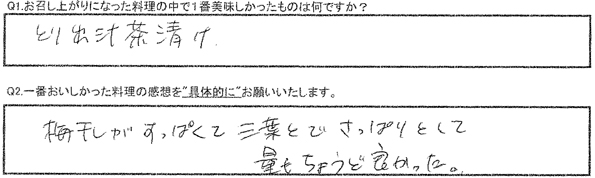 Q1.お召し上がりになった料理の中で1番美味しかったものは何ですか？
とり出汁茶漬け
Q2.一番おいしかった料理の感想を"具体的に"お願いいたします。
梅干しがすっぱくて三葉とでさっぱりとして
量もちょうど良かった。